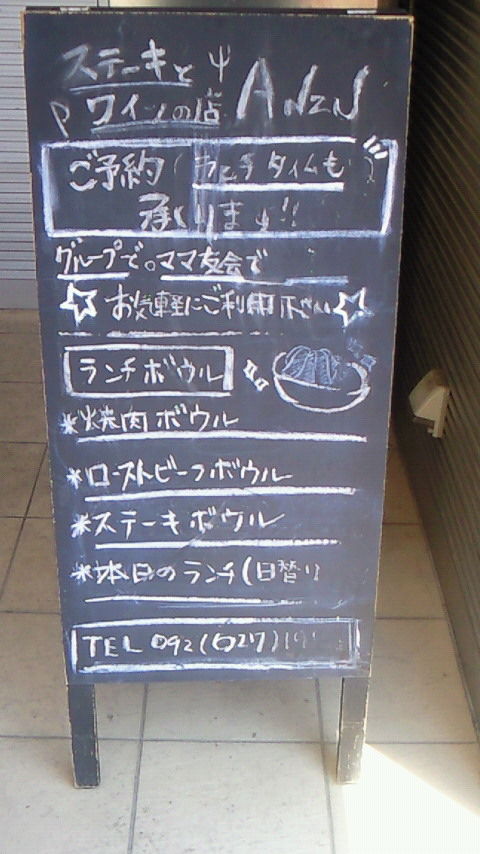 ステーキと
ワインの店 ANZN
ご予約(ランチタイムも)
承ります!!
グループで。ママ友会で
☆お気軽にご利用下さい☆
ランチボウル
*焼肉ボウル
*ローストビーフボウル
*ステーキボウル
*本日のランチ(日替り
TEL 092(627)